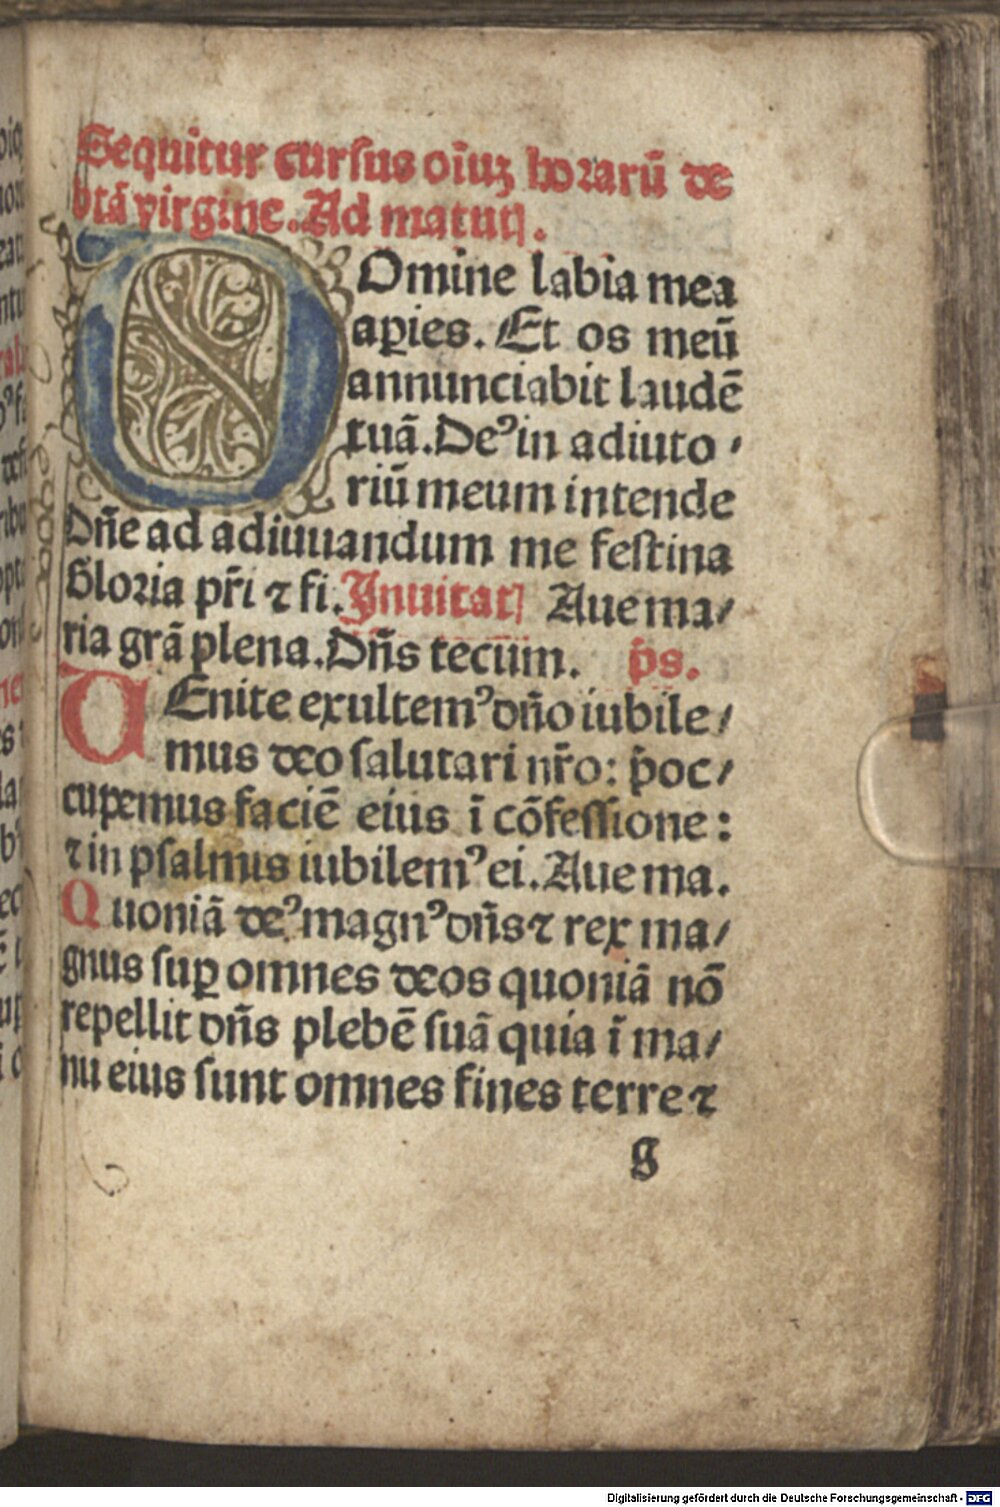 Sequitur cursus oīuꝫ horarū de
btā virgine. Ad matutꝭ.
DOmine labia mea
aꝑies. Et os meū
annunciabit laudē
tuā. Deꝰ in adiuto
riū meum intende
Dn̄e ad adiuuandum me festina
Gloria pr̄i ⁊ fi. Inuitatꝭ Aue ma/
ria grā plena. Dn̄s tecum. p̄s.
VEnite exultemꝰ dn̄o iubile/
mus deo salutari nr̄o: p̄oc/
cupemus faciē eius ī cōfessione:
⁊ in psalmis iubilemꝰ ei. Aue ma.
Quoniā deꝰ magnꝰ dn̄s ⁊ rex ma/
gnus suꝑ omnes deos quoniā nō
repellit dn̄s plebē suā quia ī ma/
nu eius sunt omnes fines terre ⁊
g
Digitalisierung gefördert durch die Deutsche Forschungsgemeinschaft - DFG